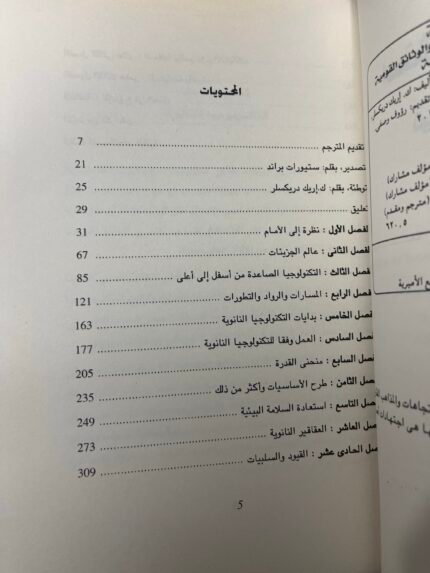 المحتويات
تقديم المترجم 7
تصدير، بقلم: ستيورات براند 21
توطئة، بقلم: ك.إريك دريكسلر 25
تعليق 29
لفصل الأول : نظرة إلى الأمام 31
لفصل الثانى : عالم الجزيئات 67
فصل الثالث : التكنولوجيا الصاعدة من أسفل إلى أعلى 85
فصل الرابع : المسارات والرواد والتطورات 121
فصل الخامس : بدايات التكنولوجيا النانوية 163
فصل السادس : العمل وفقا للتكنولوجيا النانوية 177
فصل السابع : منحنى القدرة 205
فصل الثامن : طرح الأساسيات وأكثر من ذلك 235
صل التاسع : استعادة السلامة البيئية 249
صل العاشر : العقاقير النانوية 273
صل الحادى عشر : القيود والسلبيات 309
5
والوثائق القومية
أليف: ك. إريك دريكسلر
تقديم: رؤوف وصفى
مؤلف مشارك)
مؤلف مشارك)
(مترجم ومقدم)
٦٢٠,٥
ع الأميرية
تجاهات والمذاهب
ها هى اجتهادات